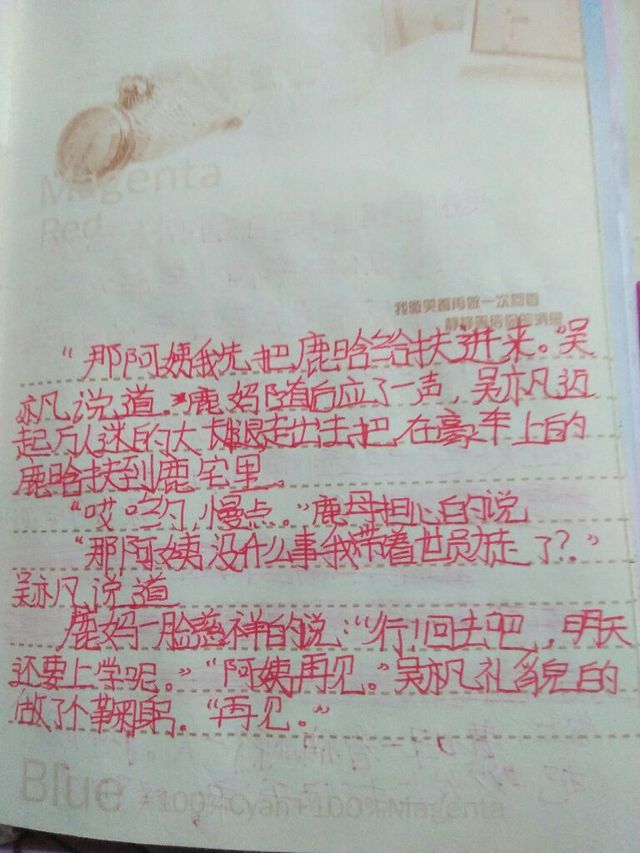 Magenta
Red
我微笑着再做一次回首
静静等待你的消息
“那阿姨我先把鹿晗给扶进来。”吴
亦凡说道。鹿妈随后应了一声，吴亦凡迈
起万人迷的大长腿走出去把在豪车上的
鹿晗扶到鹿宅里。
“哎哟，慢点。”鹿母担心的说
“那阿姨没什么事我带着世勋走了？”
吴亦凡说道
鹿妈一脸慈祥的说：“行！回去吧，明天
还要上学呢。”“阿姨再见。”吴亦凡礼貌的
做了个鞠躬。“再见。”
Blue =100%Cyan+100%Magenta